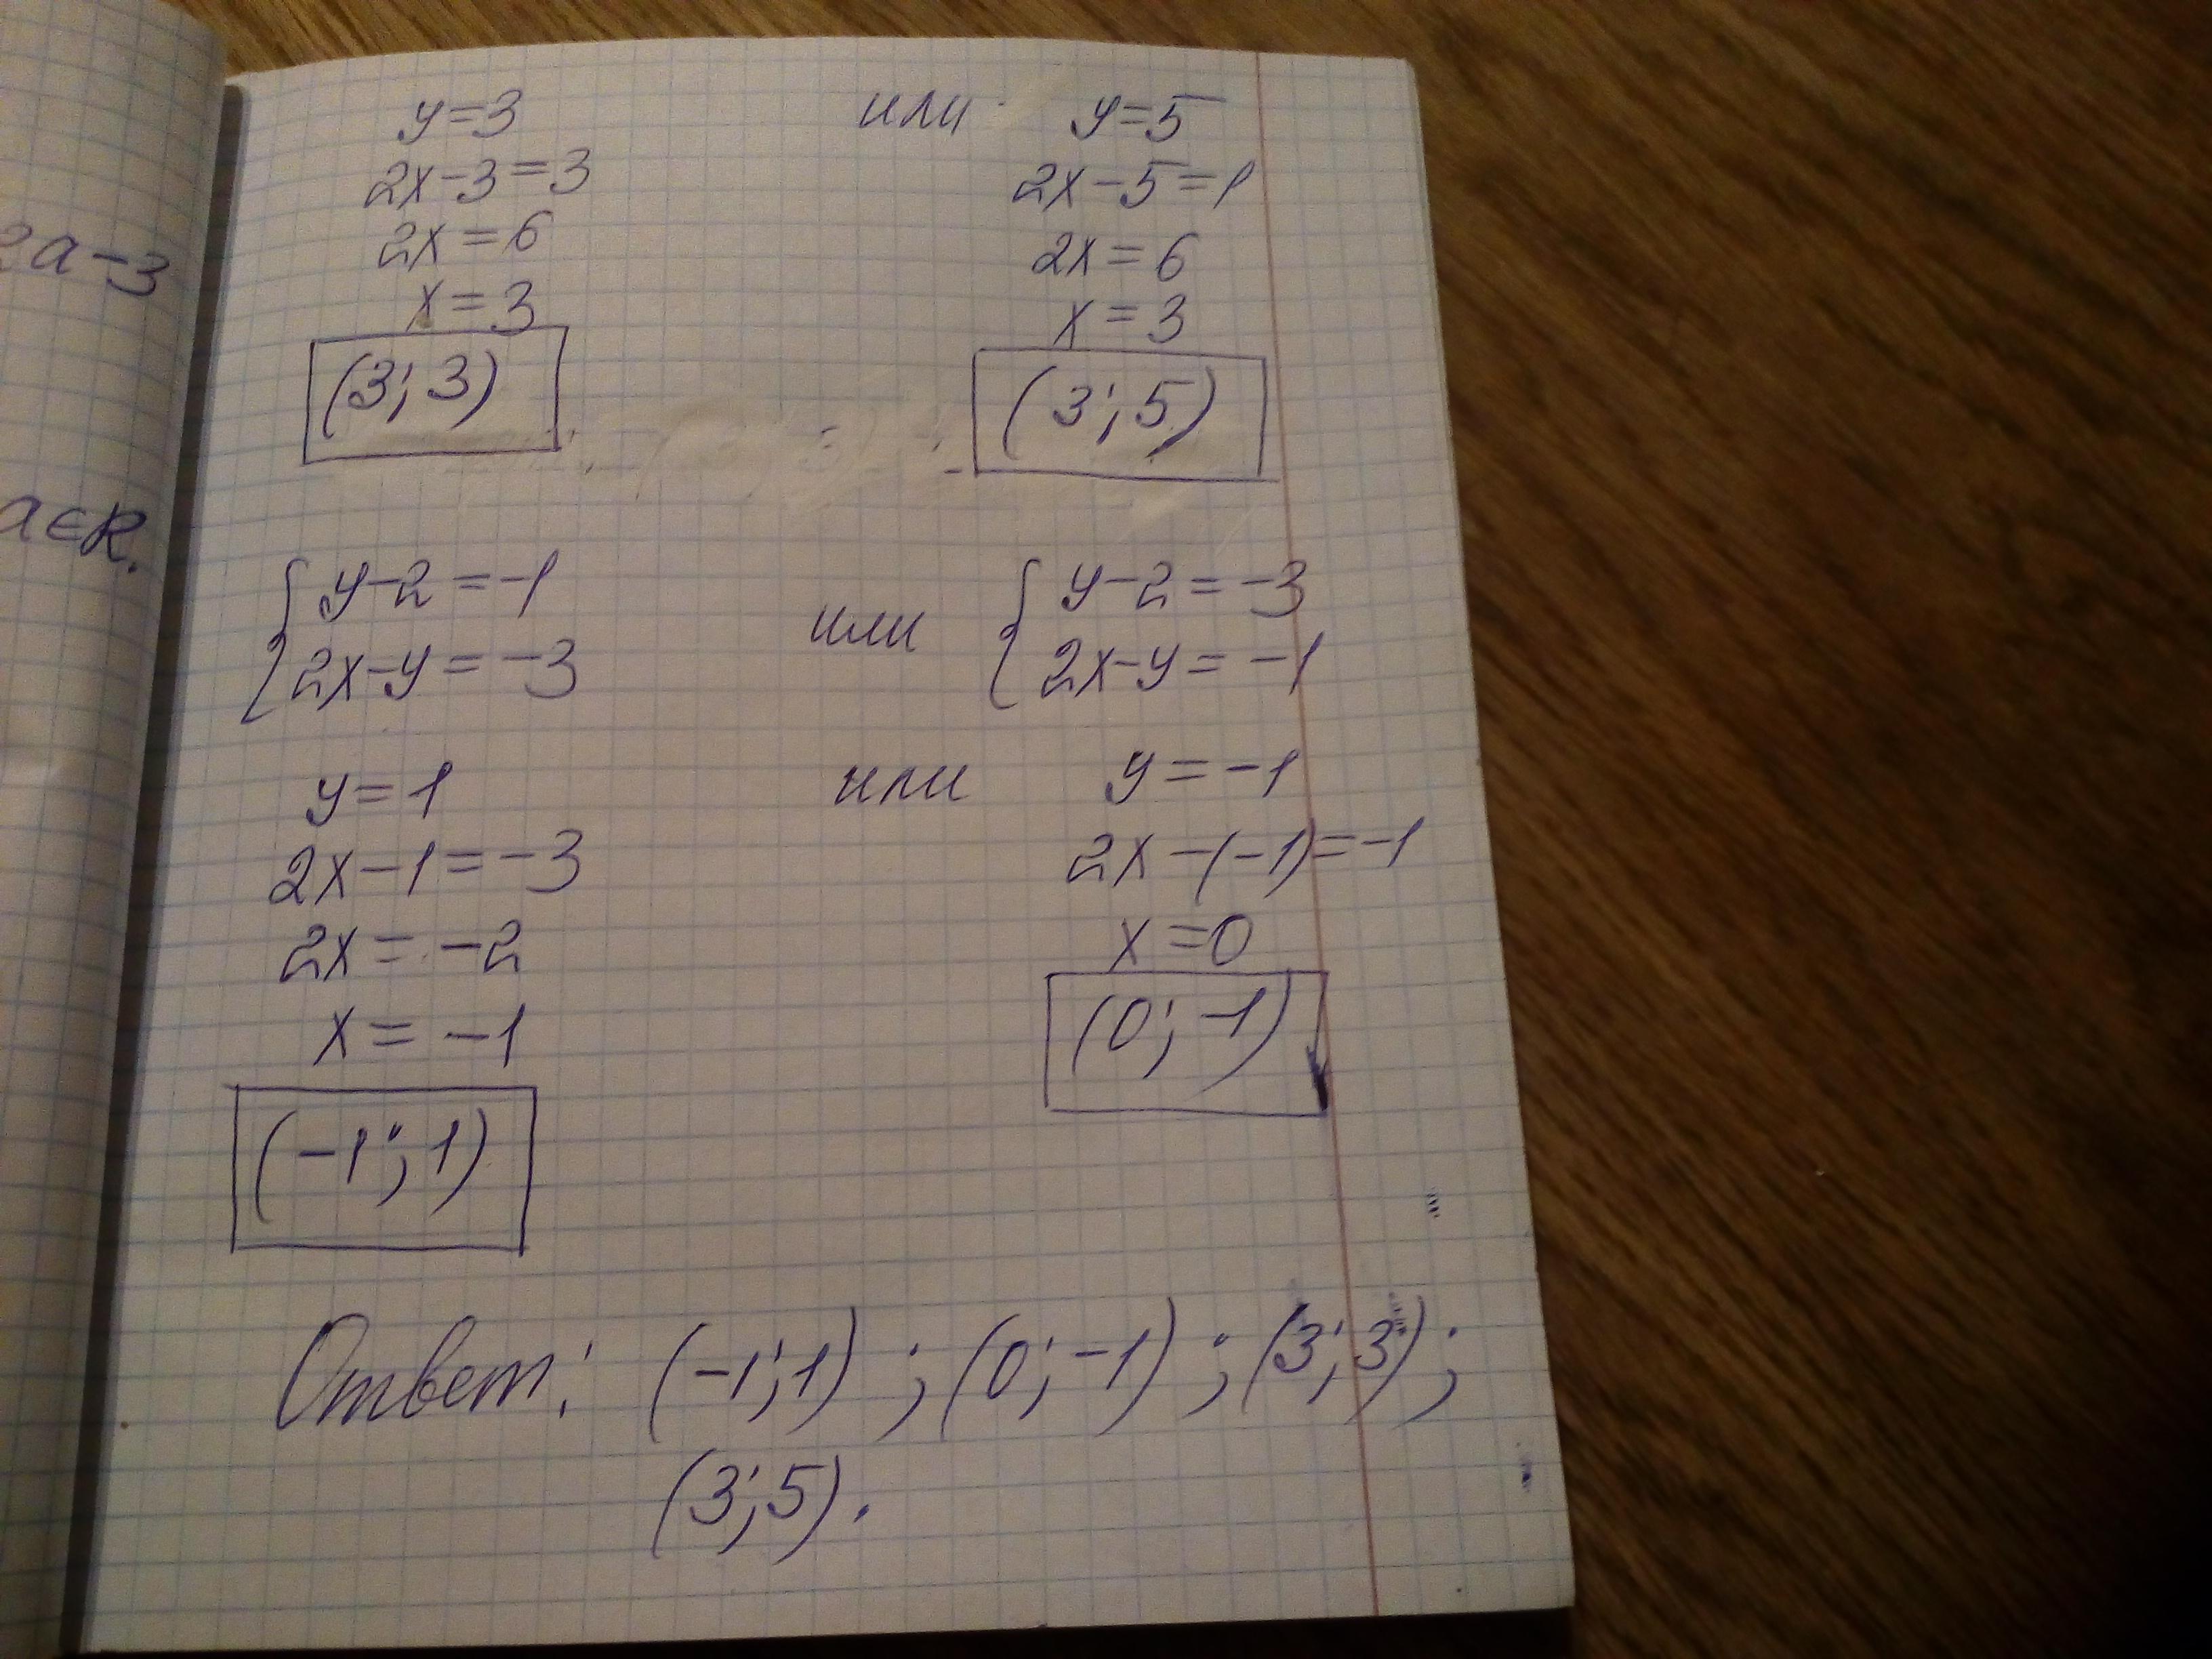 2a-3
a∈R.
y=3 или y=5
2x-3=3 2x-5=1
2x=6 2x=6
x=3 x=3
(3; 3) (3; 5)
{ y-2=-1 или { y-2=-3
2x-y=-3 2x-y=-1
y=1 или y=-1
2x-1=-3 2x-(-1)=-1
2x=-2 x=0
x=-1 (0; -1)
(-1; 1)
Ответ: (-1; 1) ; (0; -1) ; (3; 3);
(3; 5).